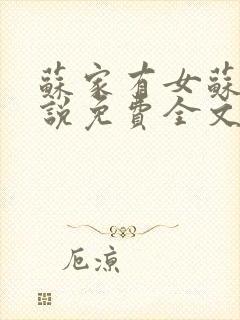 蘇家有女蘇
說免費全文
厄涼